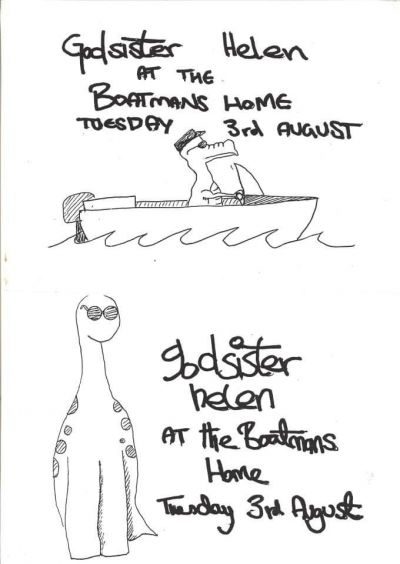 Godsister Helen
AT THE
BOATMANS HOME
TUESDAY 3rd AUGUST
godsister
helen
AT the Boatmans
Home
Tuesday 3rd August